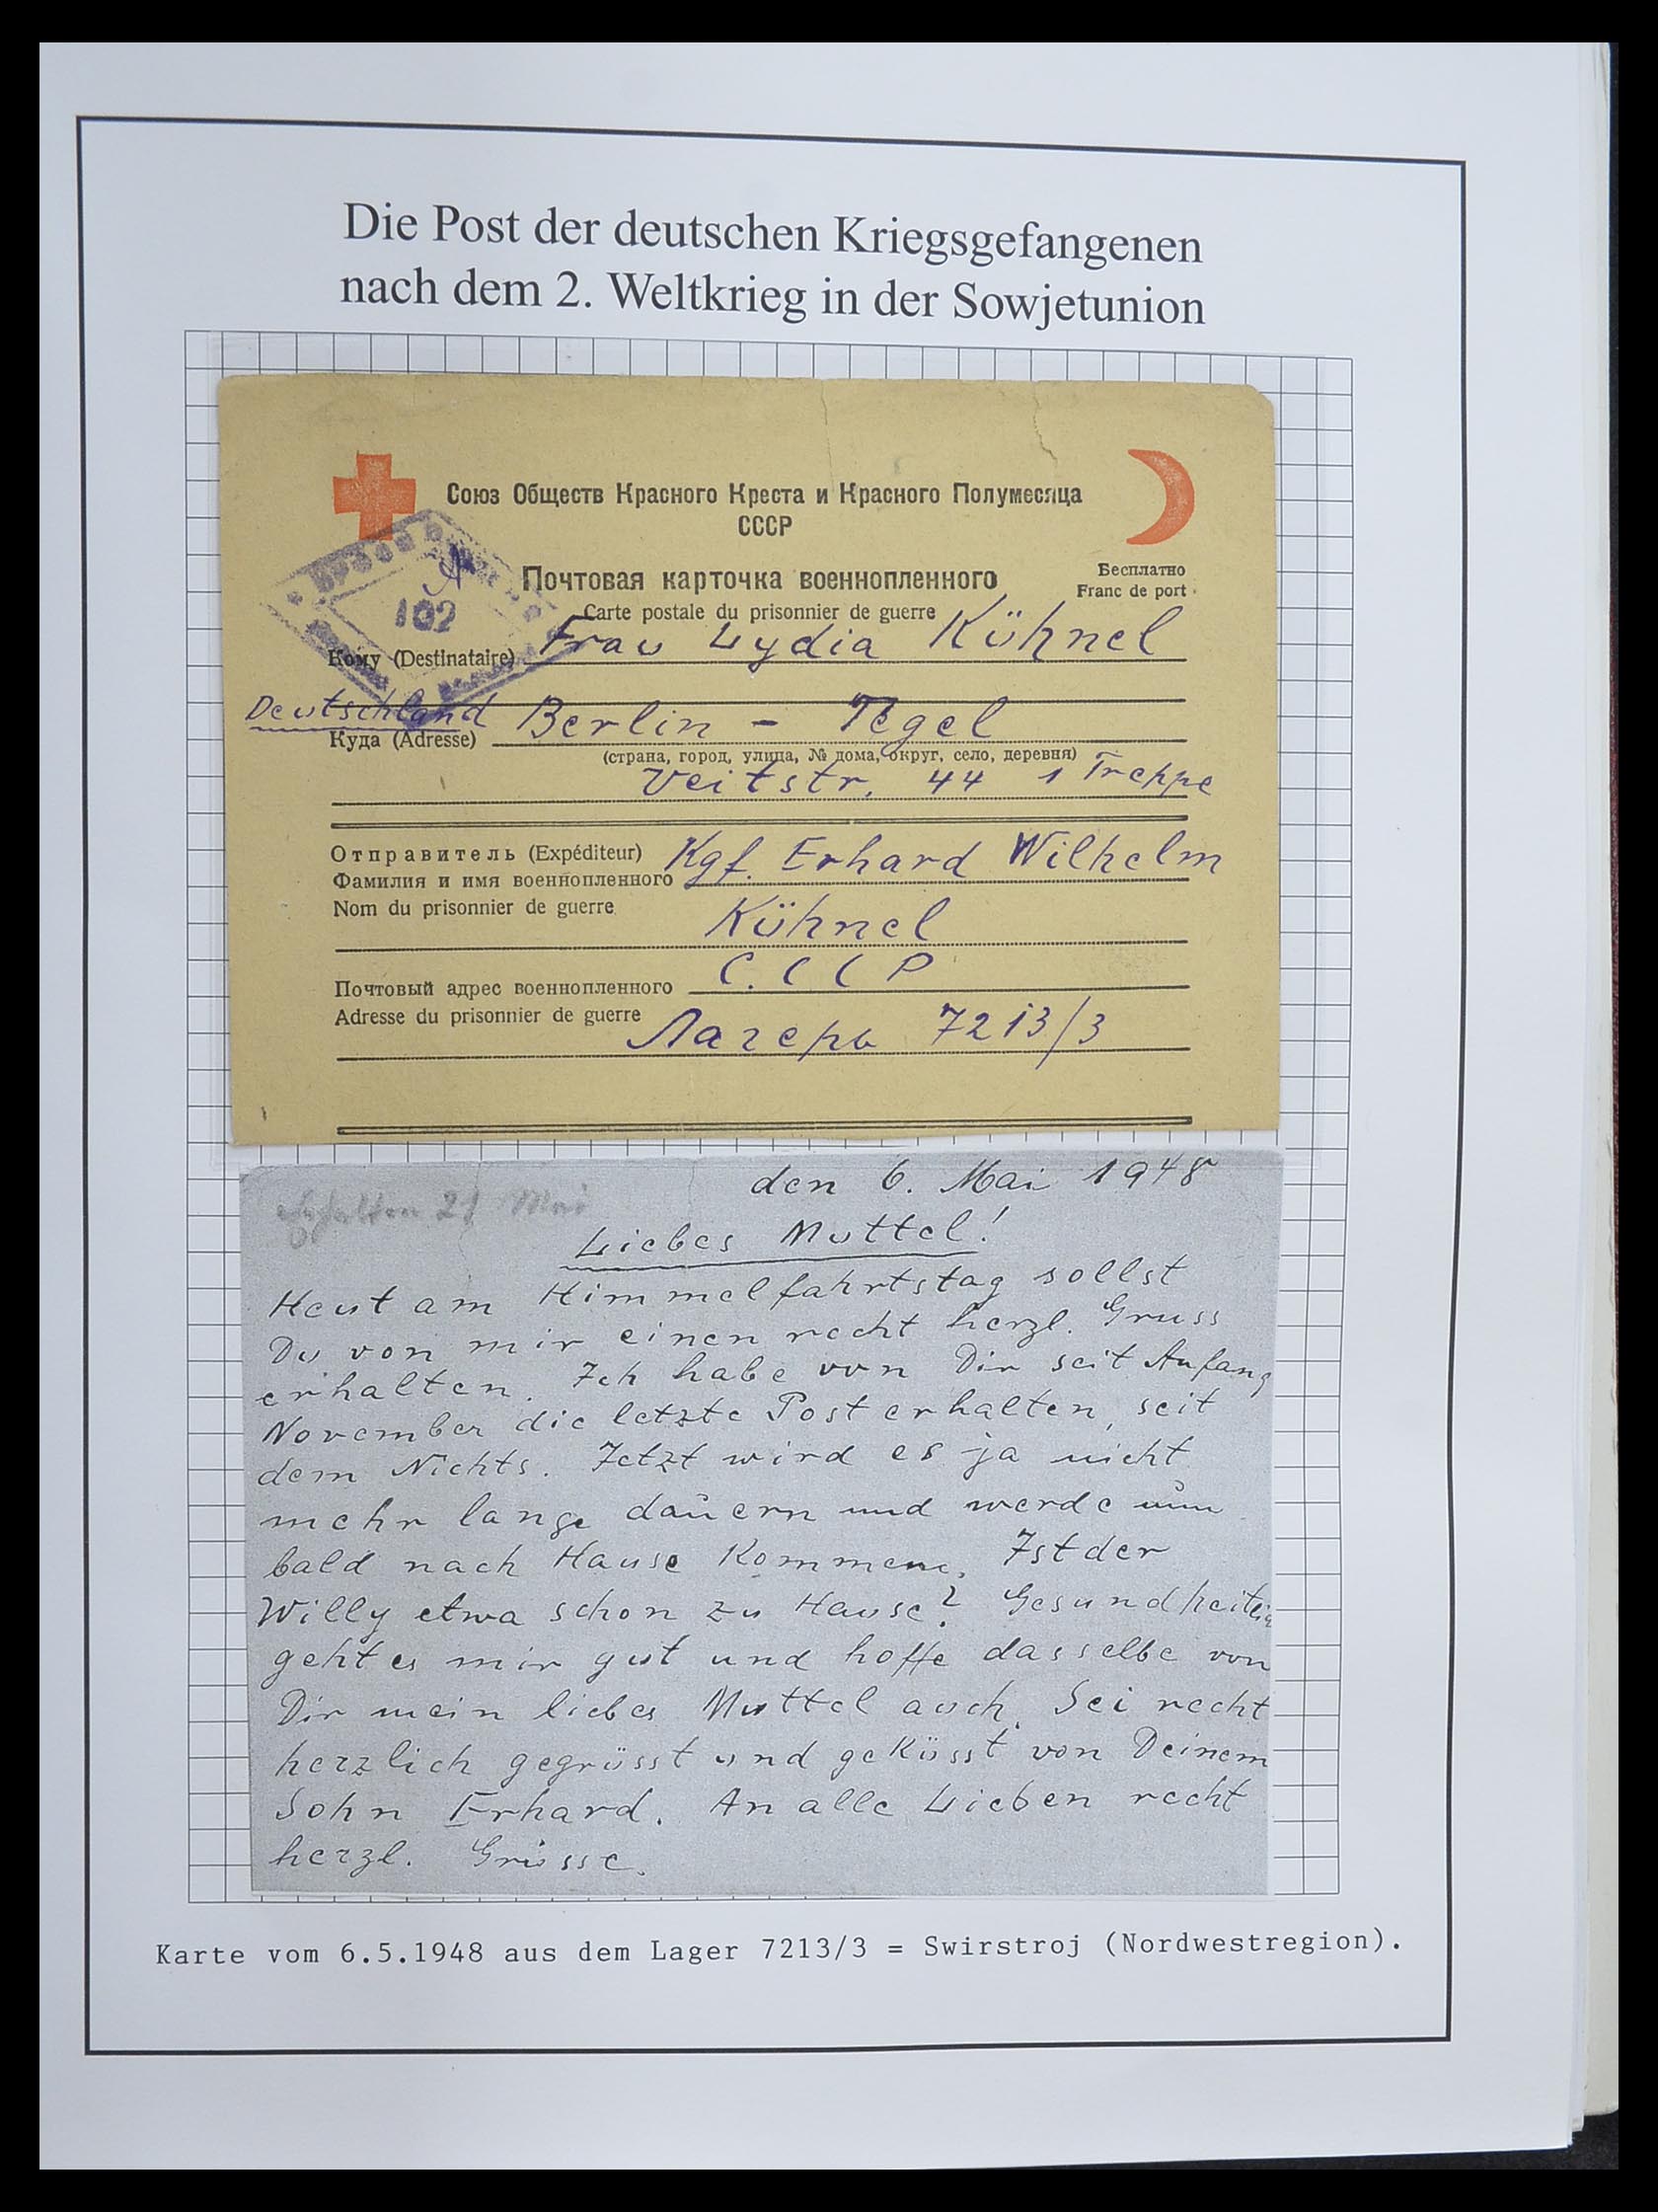 Die Post der deutschen Kriegsgefangenen
nach dem 2. Weltkrieg in der Sowjetunion
Союз Обществ Красного Креста и Красного Полумесяца
СССР
Почтовая карточка военнопленного
Carte postale du prisonnier de guerre
Бесплатно
Franc de port
102
Кому (Destinataire) Frau Lydia Kühnel
Deutschland
Куда (Adresse) Berlin - Tegel
(страна, город, улица, № дома, округ, село, деревня)
Veitstr. 44 1 Treppe
Отправитель (Expéditeur) Kgf. Erhard Wilhelm
Фамилия и имя военнопленного
Nom du prisonnier de guerre
Kühnel
Почтовый адрес военнопленного С.ССР
Adresse du prisonnier de guerre Лагерь 7213/3
den 6. Mai 1948
erhalten 21 Mai
Liebes Muttel!
Heut am Himmelfahrtstag sollst
Du von mir einen recht herzl. Gruss
erhalten. Ich habe von Dir seit Anfang
November die letzte Post erhalten, seit
dem Nichts. Jetzt wird es ja nicht
mehr lange dauern und werde nun
bald nach Hause Kommen. Ist der
Willy etwa schon zu Hause? Gesundheitlich
geht es mir gut und hoffe dasselbe von
Dir mein liebes Muttel auch. Sei recht
herzlich gegrüsst und geküsst von Deinem
Sohn Erhard. An alle Lieben recht
herzl. Grüsse.
Karte vom 6.5.1948 aus dem Lager 7213/3 = Swirstroj (Nordwestregion).